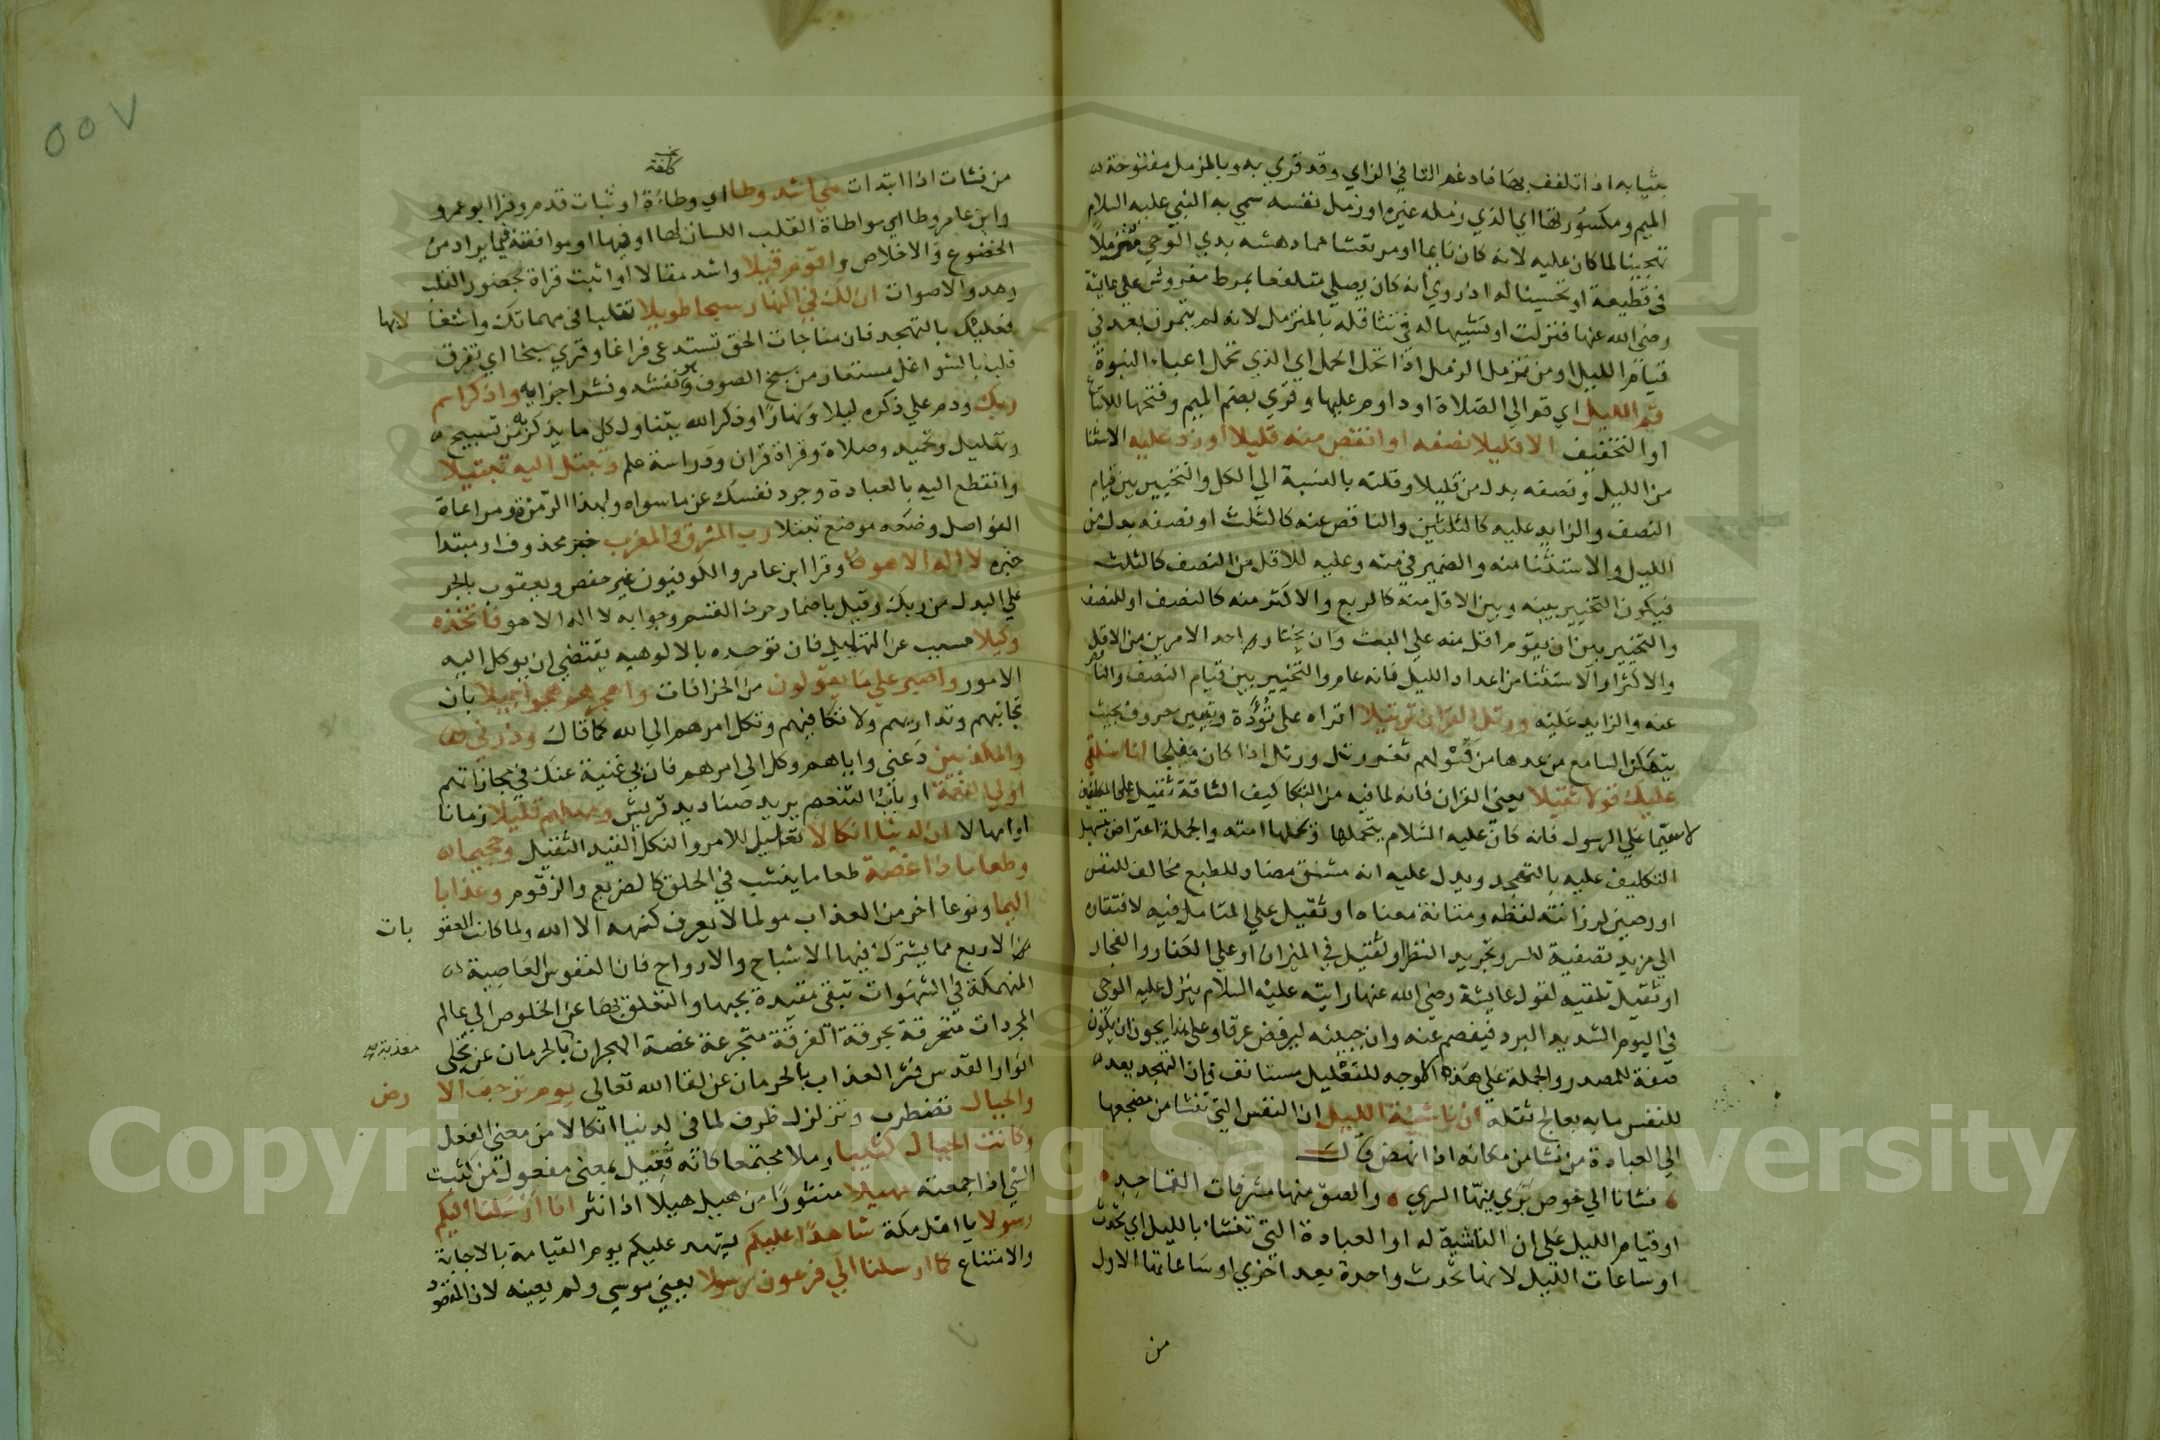 بثيابه اذا تلفف بها فادغم التا في الزاي وقد قري به وبالمزمل مفتوحة
الميم ومكسورتها اي الذي زمله غيره او زمل نفسه سمي به النبي عليه السلام
تهجينا لما كان عليه لانه كان نايما او مرتعشا مما دهشه بدي الوحي متزملا
في قطيفة او تحسينا له اذ روي انه كان يصلي متلففا بمرط مفروش علي عايشة
رضي الله عنها فنزلت او تشبيها له في تثاقله بالمتزمل لانه لم يتمرن بعد في
قيام الليل او من تزمل الزمل اذا تحمل الحمل اي الذي تحمل اعباء النبوة
قم الليل اي قم الي الصلاة او داوم عليها وقري بضم الميم وفتحها للاتباع
او التخفيف الا قليلا نصفه او انقص منه قليلا او زد عليه الاستثنا
من الليل ونصفه بدل من قليلا وقلته بالنسبة الي الكل والتخيير بين قيام
النصف والزايد عليه كالثلثين والناقص عنه كالثلث او نصفه بدل من
الليل والاستثنا منه والضمير في منه وعليه للاقل من النصف كالثلث
فيكون التخيير بينه وبين الاقل منه كالربع والاكثر منه كالنصف او للنصف
والتخيير بين ان يقوم اقل منه علي البت وان يختار احد الامرين من الاقل
والاكثر او الاستثنا من اعداد الليل فانه عام والتخيير بين قيام النصف والناقص
عنه والزايد عليه ورتل القران ترتيلا اقراه علي تؤدة وتبيين حروف بحيث
يتمكن السامع من عدها من قولهم ثغر رتل ورتل اذا كان مفلجا انا سنلقي
عليك قولا ثقيلا يعني القران فانه لما فيه من التكاليف الشاقة ثقيل علي المكلفين
لا سيما علي الرسول فانه كان عليه السلام يتحملها ويحملها امته والجملة اعتراض يسهل
التكليف عليه بالتهجد ويدل عليه انه مشق مضاد للطبع مخالف للنفس
او رصين لرزانة لفظه ومتانة معناه او ثقيل علي المتامل فيه لافتقاره
الي مزيد تصفية للسر وتجريد للنظر او ثقيل في الميزان او علي الكفار والفجار
او ثقيل تلقيه لقول عايشة رضي الله عنها رايته عليه السلام ينزل عليه الوحي
في اليوم الشديد البرد فيفصم عنه وان جبينه ليرفض عرقا وعلي هذا يجوز ان يكون
صفة للمصدر والجملة علي هذه الاوجه للتعليل مستانف فان التهجد يعد
للنفس ما به يعالج ثقله ان ناشئة الليل ان النفس التي تنشا من مضجعها
الي العبادة من نشا من مكانه اذا نهض قال
نشانا الي خوص بري نيها السري والصق منها مشرفات القماحد
او قيام الليل علي ان الناشية له او العبادة التي تنشا بالليل اي تحدث
او ساعات الليل لانها تحدث واحدة بعد اخري او ساعاتها الاول
من
٥٥٧
كلفة
من نشات اذا ابتدات هي اشد وطا اي وطاءة او ثبات قدم وقرا ابو عمرو
وابن عامر وطا اي مواطاة القلب اللسان لها او فيها او موافقة لما يراد من
الخضوع والاخلاص واقوم قيلا واشد مقالا او اثبت قراة لحضور القلب
وهدو الاصوات ان لك في النهار سبحا طويلا تقلبا في مهماتك واشتغالا بها
فعليك بالتهجد فان مناجات الحق تستدعي فراغا وقري سبخا اي تفرق
قلب بالشواغل مستعار من سبخ الصوف وهو نفشه ونشر اجزايه واذكر اسم
ربك ودم علي ذكره ليلا ونهارا وذكر الله يتناول كل ما يذكر به من تسبيح
وتهليل وتحميد وصلاة وقراة قران ودراسة علم وتبتل اليه تبتيلا
وانقطع اليه بالعبادة وجرد نفسك عن ماسواه ولهذا الرمزة ومراعاة
الفواصل وضعه موضع تبتلا رب المشرق والمغرب خبر محذوف او مبتدا
خبره لا اله الا هو وقرا ابن عامر والكوفيون غير حفص ويعقوب بالجر
علي البدل من ربك وقيل باضمار حرف القسم وجوابه لا اله الا هو فاتخذه
وكيلا مسبب عن التهليل فان توحده بالالوهيه يقتضي ان يوكل اليه
الامور واصبر علي ما يقولون من الخرافات واهجرهم هجرا جميلا بان
تجانبهم وتداريهم ولا تكافيهم وتكل امرهم الي الله كما قال وذرني
والمكذبين دعني واياهم وكل الي امرهم فان بي غنية عنك في مجازاتهم
اولي النعمة ارباب التنعم يريد صناديد قريش ومهلهم قليلا زمانا
او امهالا ان لدينا انكالا تعليل للامر والنكل القيد الثقيل وجحيما
وطعاما ذا غصة طعاما ينشب في الحلق كالضريع والزقوم وعذابا
اليما ونوعا اخر من العذاب مولما لا يعرف كنهه الا الله ولما كانت العقوبات
الاربع مما يشترك فيها الاشباح والارواح فان النفوس العاصية
المنهمكة في الشهوات تبقي مقيدة بحبها والتعلق بها عن الخلوص الي عالم
المجردات متحرقة بحرقة الفرقة متجرعة غصة الهجران بالحرمان عن تجلي
معذبة
انوار القدس فسر العذاب بالحرمان عن لقا الله تعالي يوم ترجف الارض
والجبال تضطرب وتتزلزل ظرف لما في لدينا انكالا من معني الفعل
وكانت الجبال كثيبا رملا مجتمعا كانه فعيل بمعني مفعول من كثبت
الشي اذا جمعته مهيلا منثورا من هيل هيلا اذا نثر انا ارسلنا اليكم
رسولا يا اهل مكة شاهدا عليكم يشهد عليكم يوم القيامة بالاجابة
والامتناع كما ارسلنا الي فرعون رسولا يعني موسي ولم يعينه لان المقصود
Copyright © King Saud University